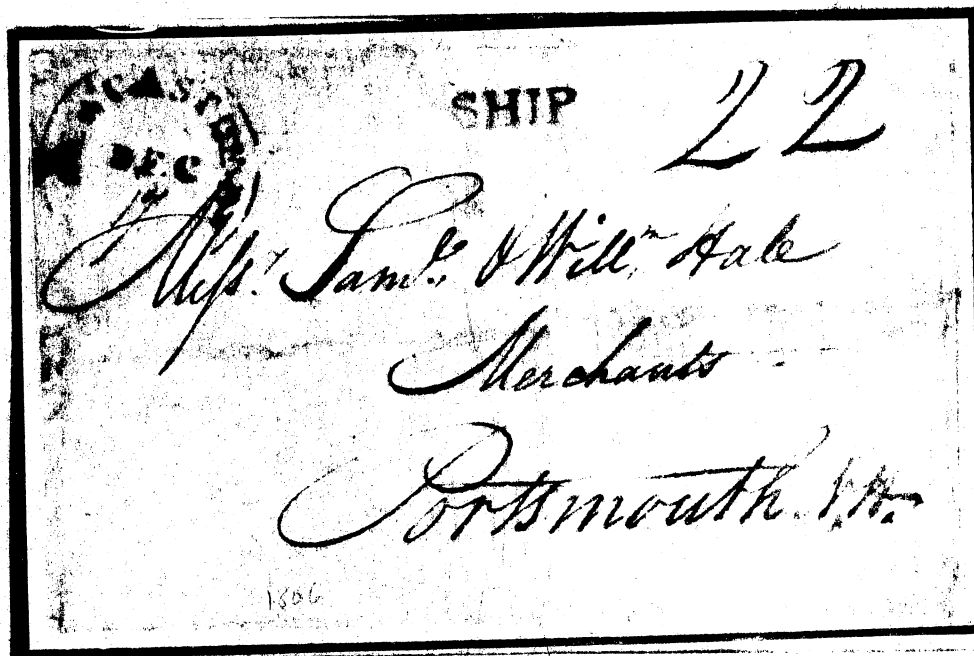 DEC
SHIP
22
Mess.rs Saml. & Willm. Hale
Merchants
Portsmouth. N.H.
1806